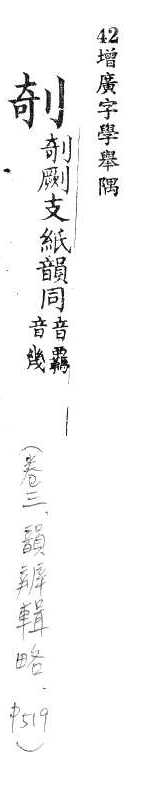 42增廣字學舉隅
剞 剞劂支紙韻同音羈音幾
(卷三、韻辨輯略、p519)